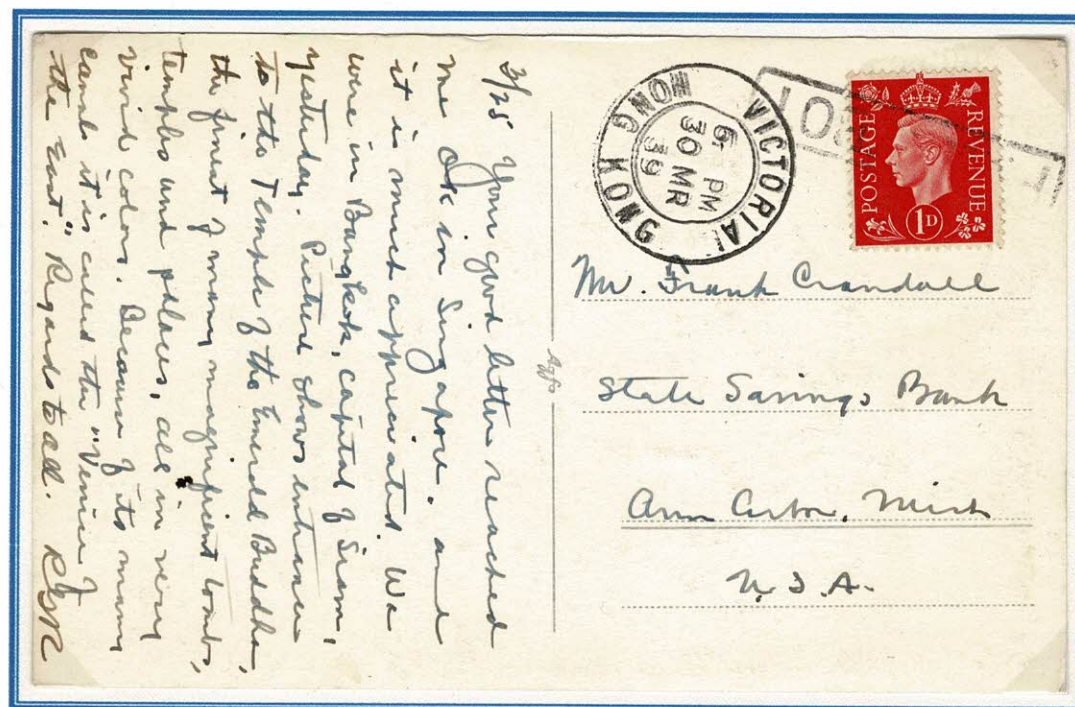 3/25 Your good letter reached
me OK in Singapore and
it is much appreciated. We
were in Bangkok, capital of Siam,
yesterday. Picture shows entrance
to the Temple of the Emerald Buddha,
the finest of many magnificent tombs,
temples and places, all in very
vivid colors. Because of its many
canals it is called the "Venice of
the East." Regards to all.
Agfa
VICTORIA
6 PM
30 MR
39
HONG KONG
POSTAGE REVENUE
1D
Mr. Frank Crandall
State Savings Bank
Ann Arbor, Mich
U.S.A.